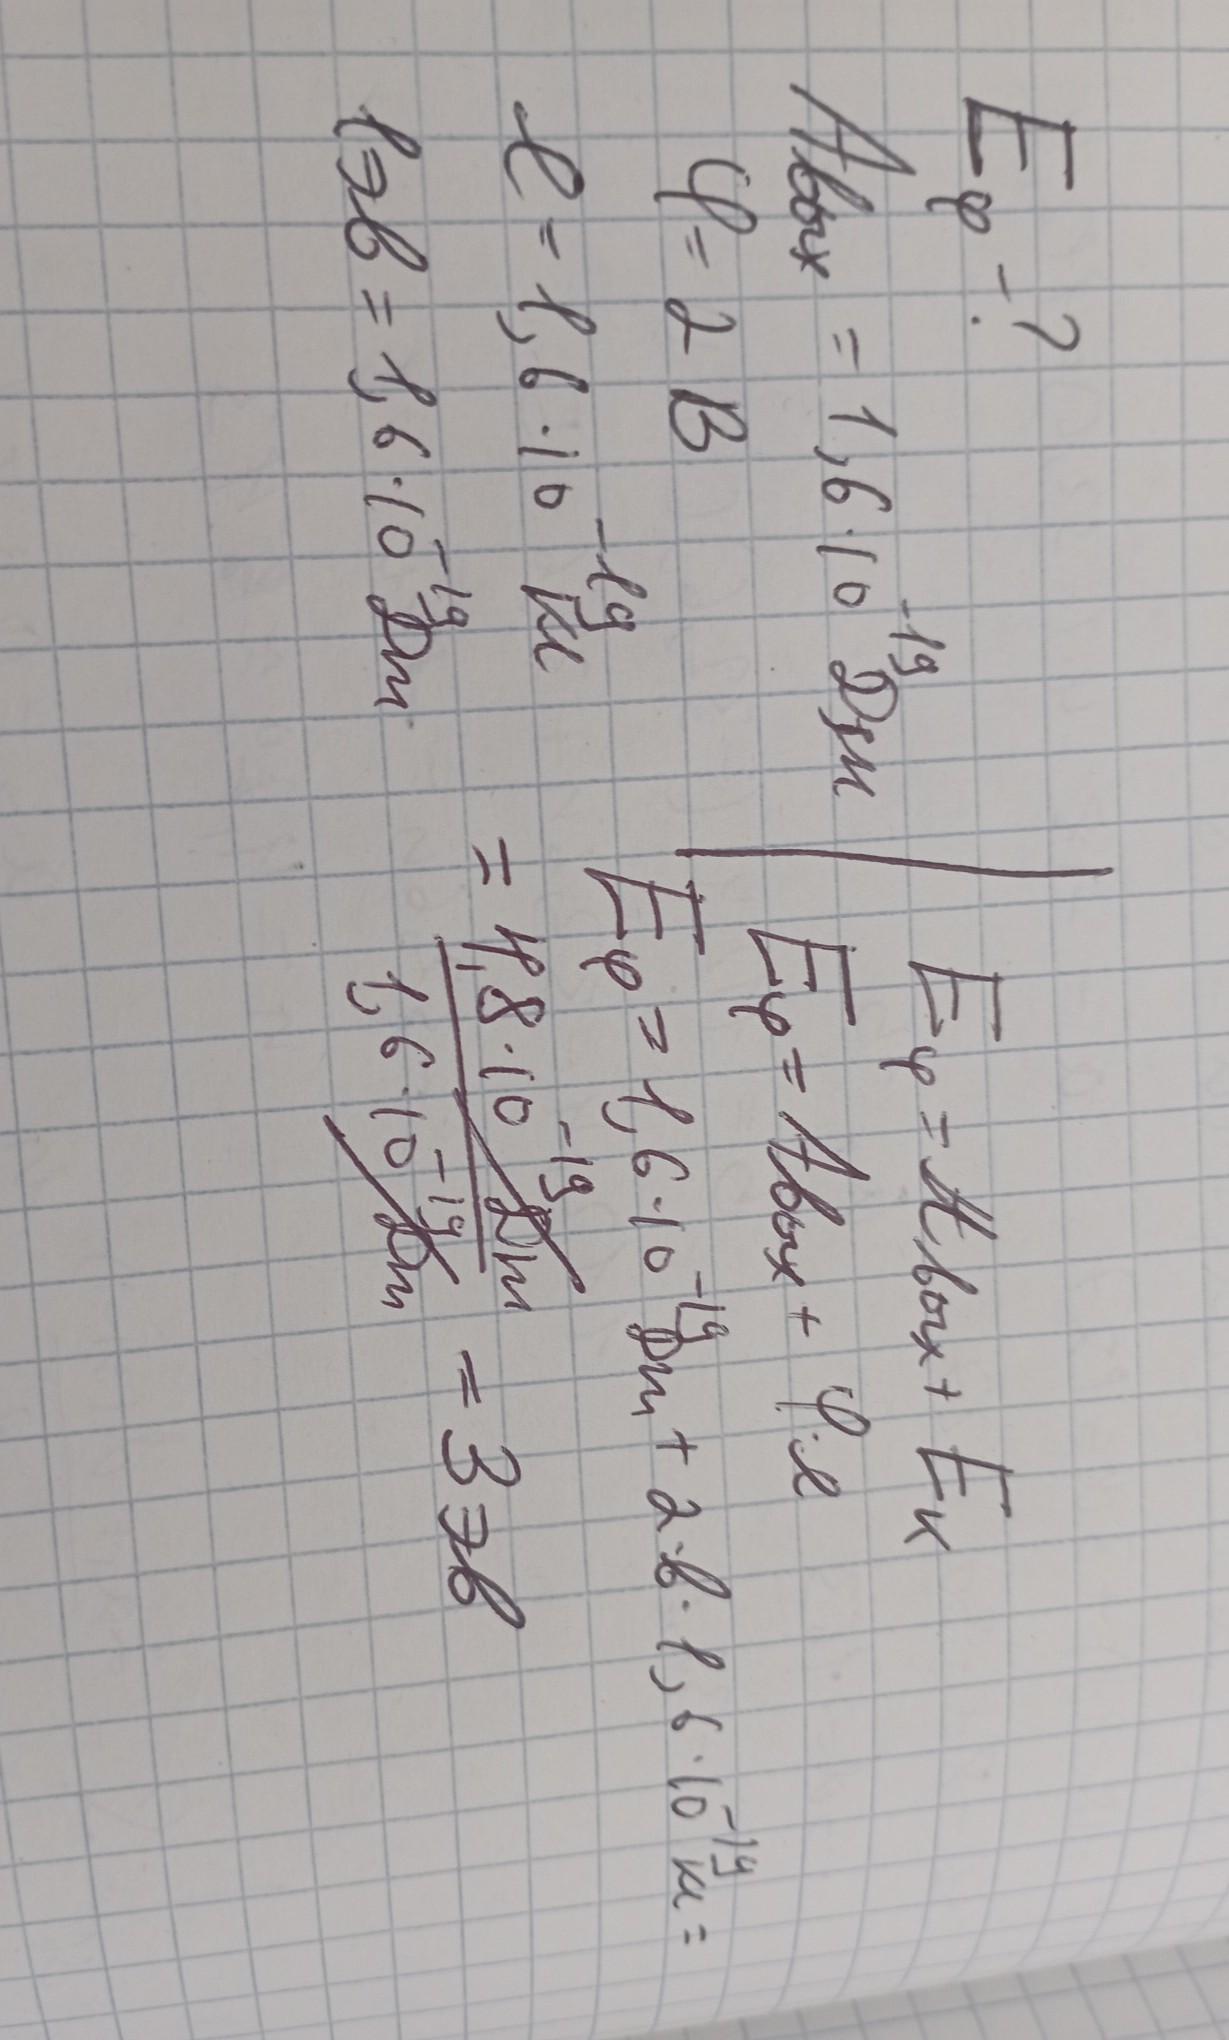 Eф - ?
Aвых = 1,6·10⁻¹⁹ Дж
φ = 2 В
e = 1,6·10⁻¹⁹ Кл
1эВ = 1,6·10⁻¹⁹ Дж
Eф = Aвых + Eк
Eф = Aвых + φ·e
Eф = 1,6·10⁻¹⁹ Дж + 2·В·1,6·10⁻¹⁹ Кл =
= 4,8·10⁻¹⁹ Дж
1,6·10⁻¹⁹ Дж = 3 эВ